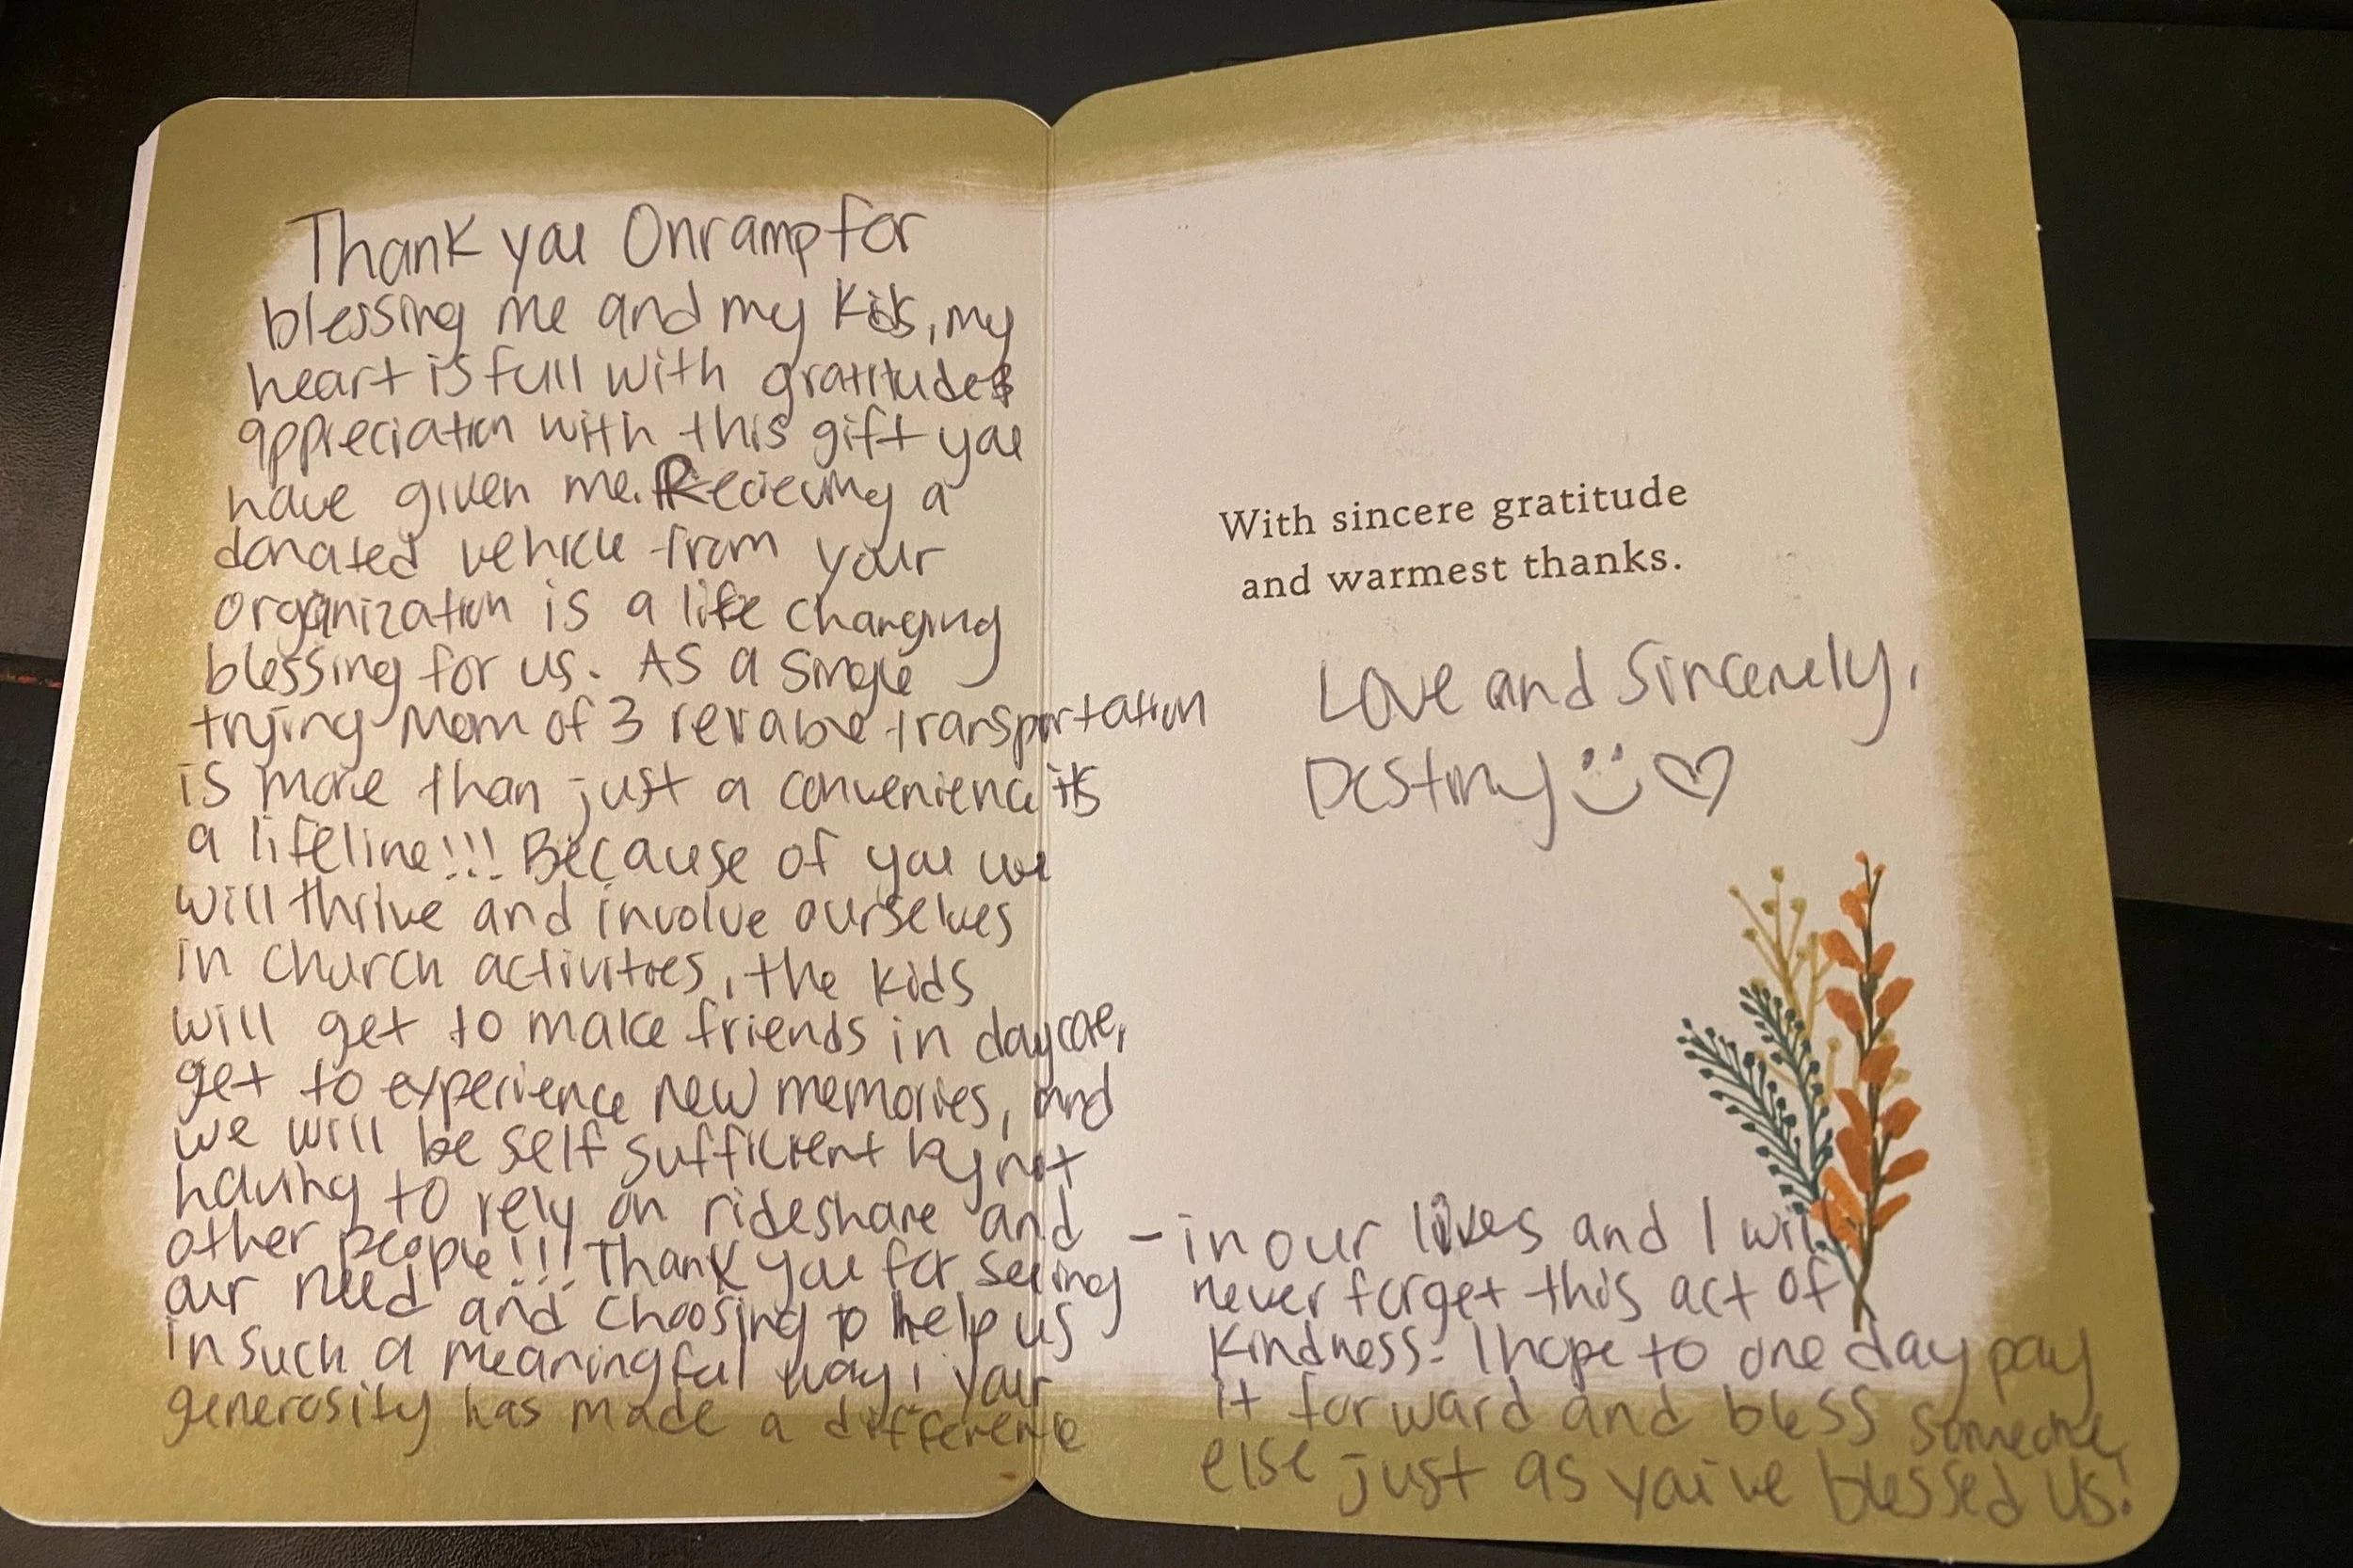 Thank you Onramp for
blessing me and my kids, my
heart is full with gratitude &
appreciation with this gift you
have given me. Recieving a
donated vehicle from your
organization is a life changing
blessing for us. As a single
trying Mom of 3 reliable transportation
is more than just a convenience its
a lifeline!!! Because of you we
will thrive and involve ourselves
in church activities, the kids
will get to make friends in daycare,
get to experience new memories, and
we will be self sufficient by not
having to rely on rideshare and
other people!!! Thank you for seeing
our need and choosing to help us
in such a meaningful way! your
generosity has made a difference
With sincere gratitude
and warmest thanks.
Love and Sincerely,
Destiny
- in our lives and I will
never forget this act of
kindness. I hope to one day pay
it forward and bless someone
else just as you've blessed us!